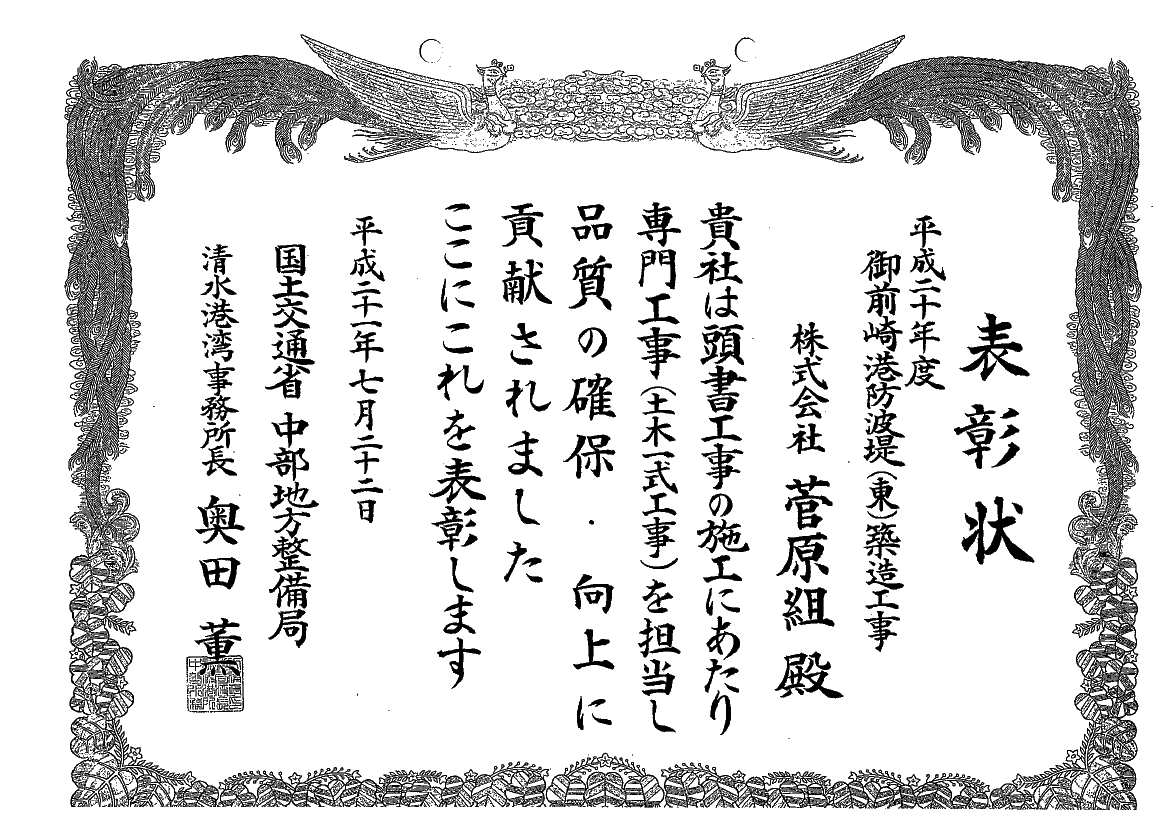 表彰状
平成二十年度
御前崎港防波堤(東)築造工事
株式会社 菅原組 殿
貴社は頭書工事の施工にあたり
専門工事(土木一式工事)を担当し
品質の確保・向上に
貢献されました
ここにこれを表彰します
平成二十一年七月二十二日
国土交通省 中部地方整備局
清水港湾事務所長 奥田 薫